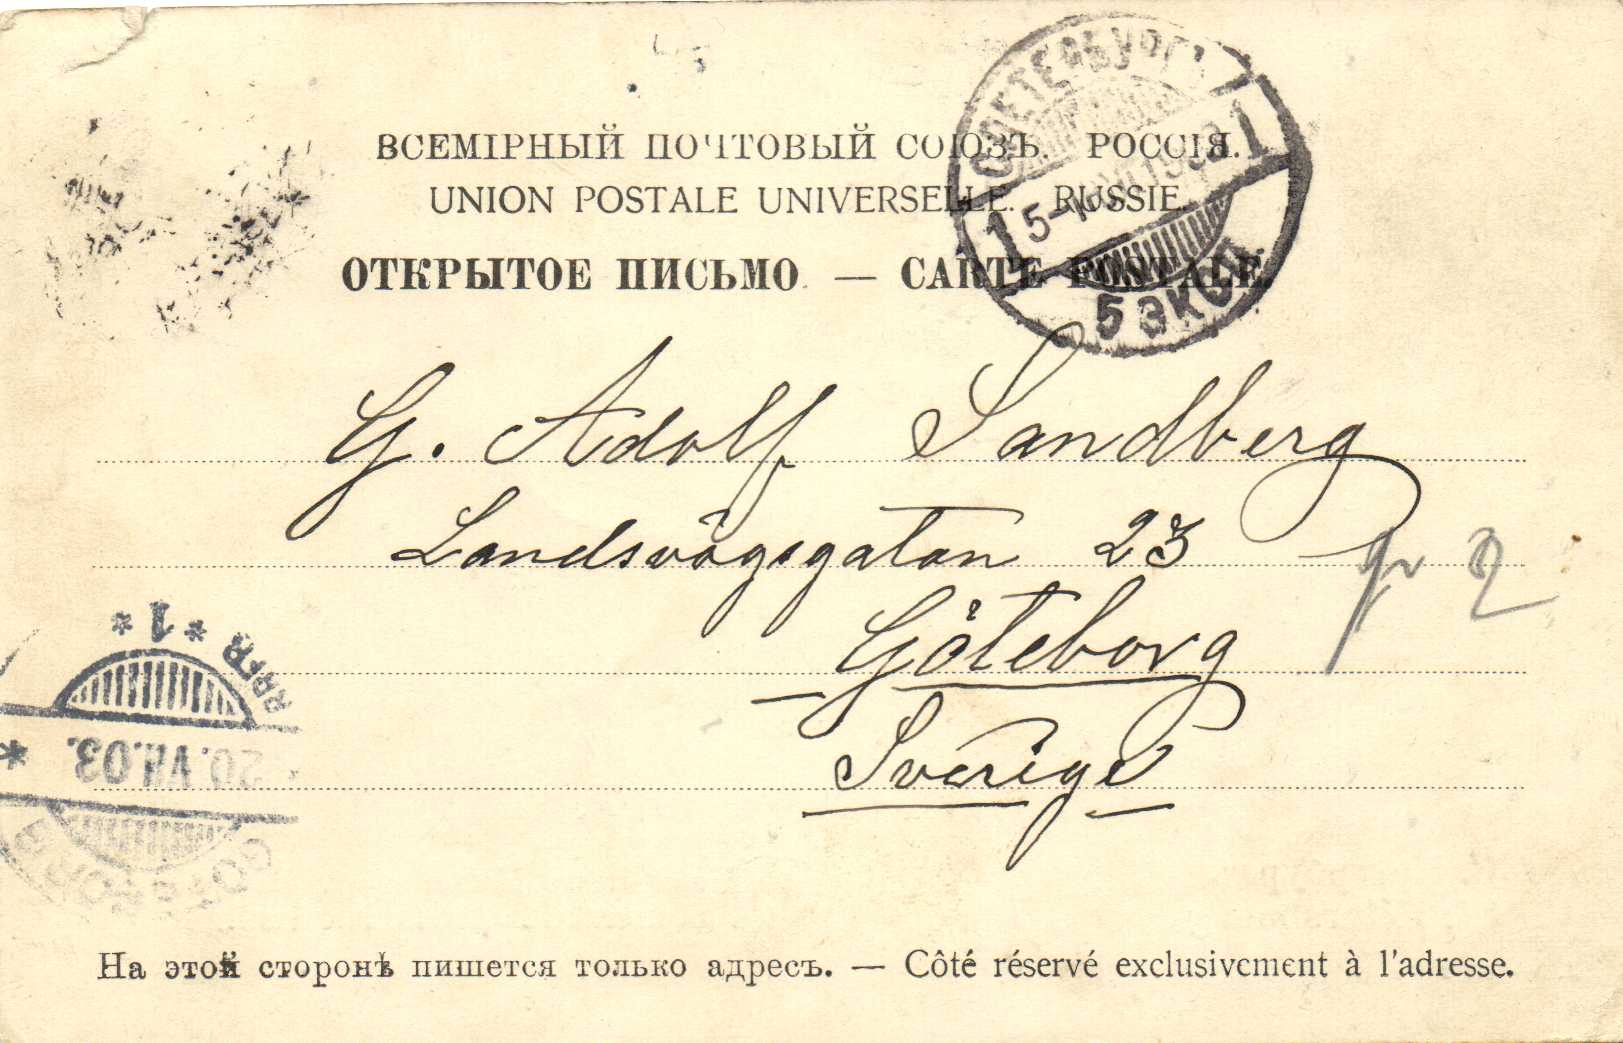 ВСЕМІРНЫЙ ПОЧТОВЫЙ СОЮЗЪ. РОССІЯ.
UNION POSTALE UNIVERSELLE. RUSSIE.
ОТКРЫТОЕ ПИСЬМО. — CARTE POSTALE.
С.ПЕТЕРБУРГЪ
1
1
5 ЭКСП.
G. Adolf Sandberg
Landsvägsgatan 23
Göteborg
Sverige
2
* 1 *
20.VII.03.
GÖTEBORG
На этой сторонѣ пишется только адресъ. — Côté réservé exclusivement à l'adresse.